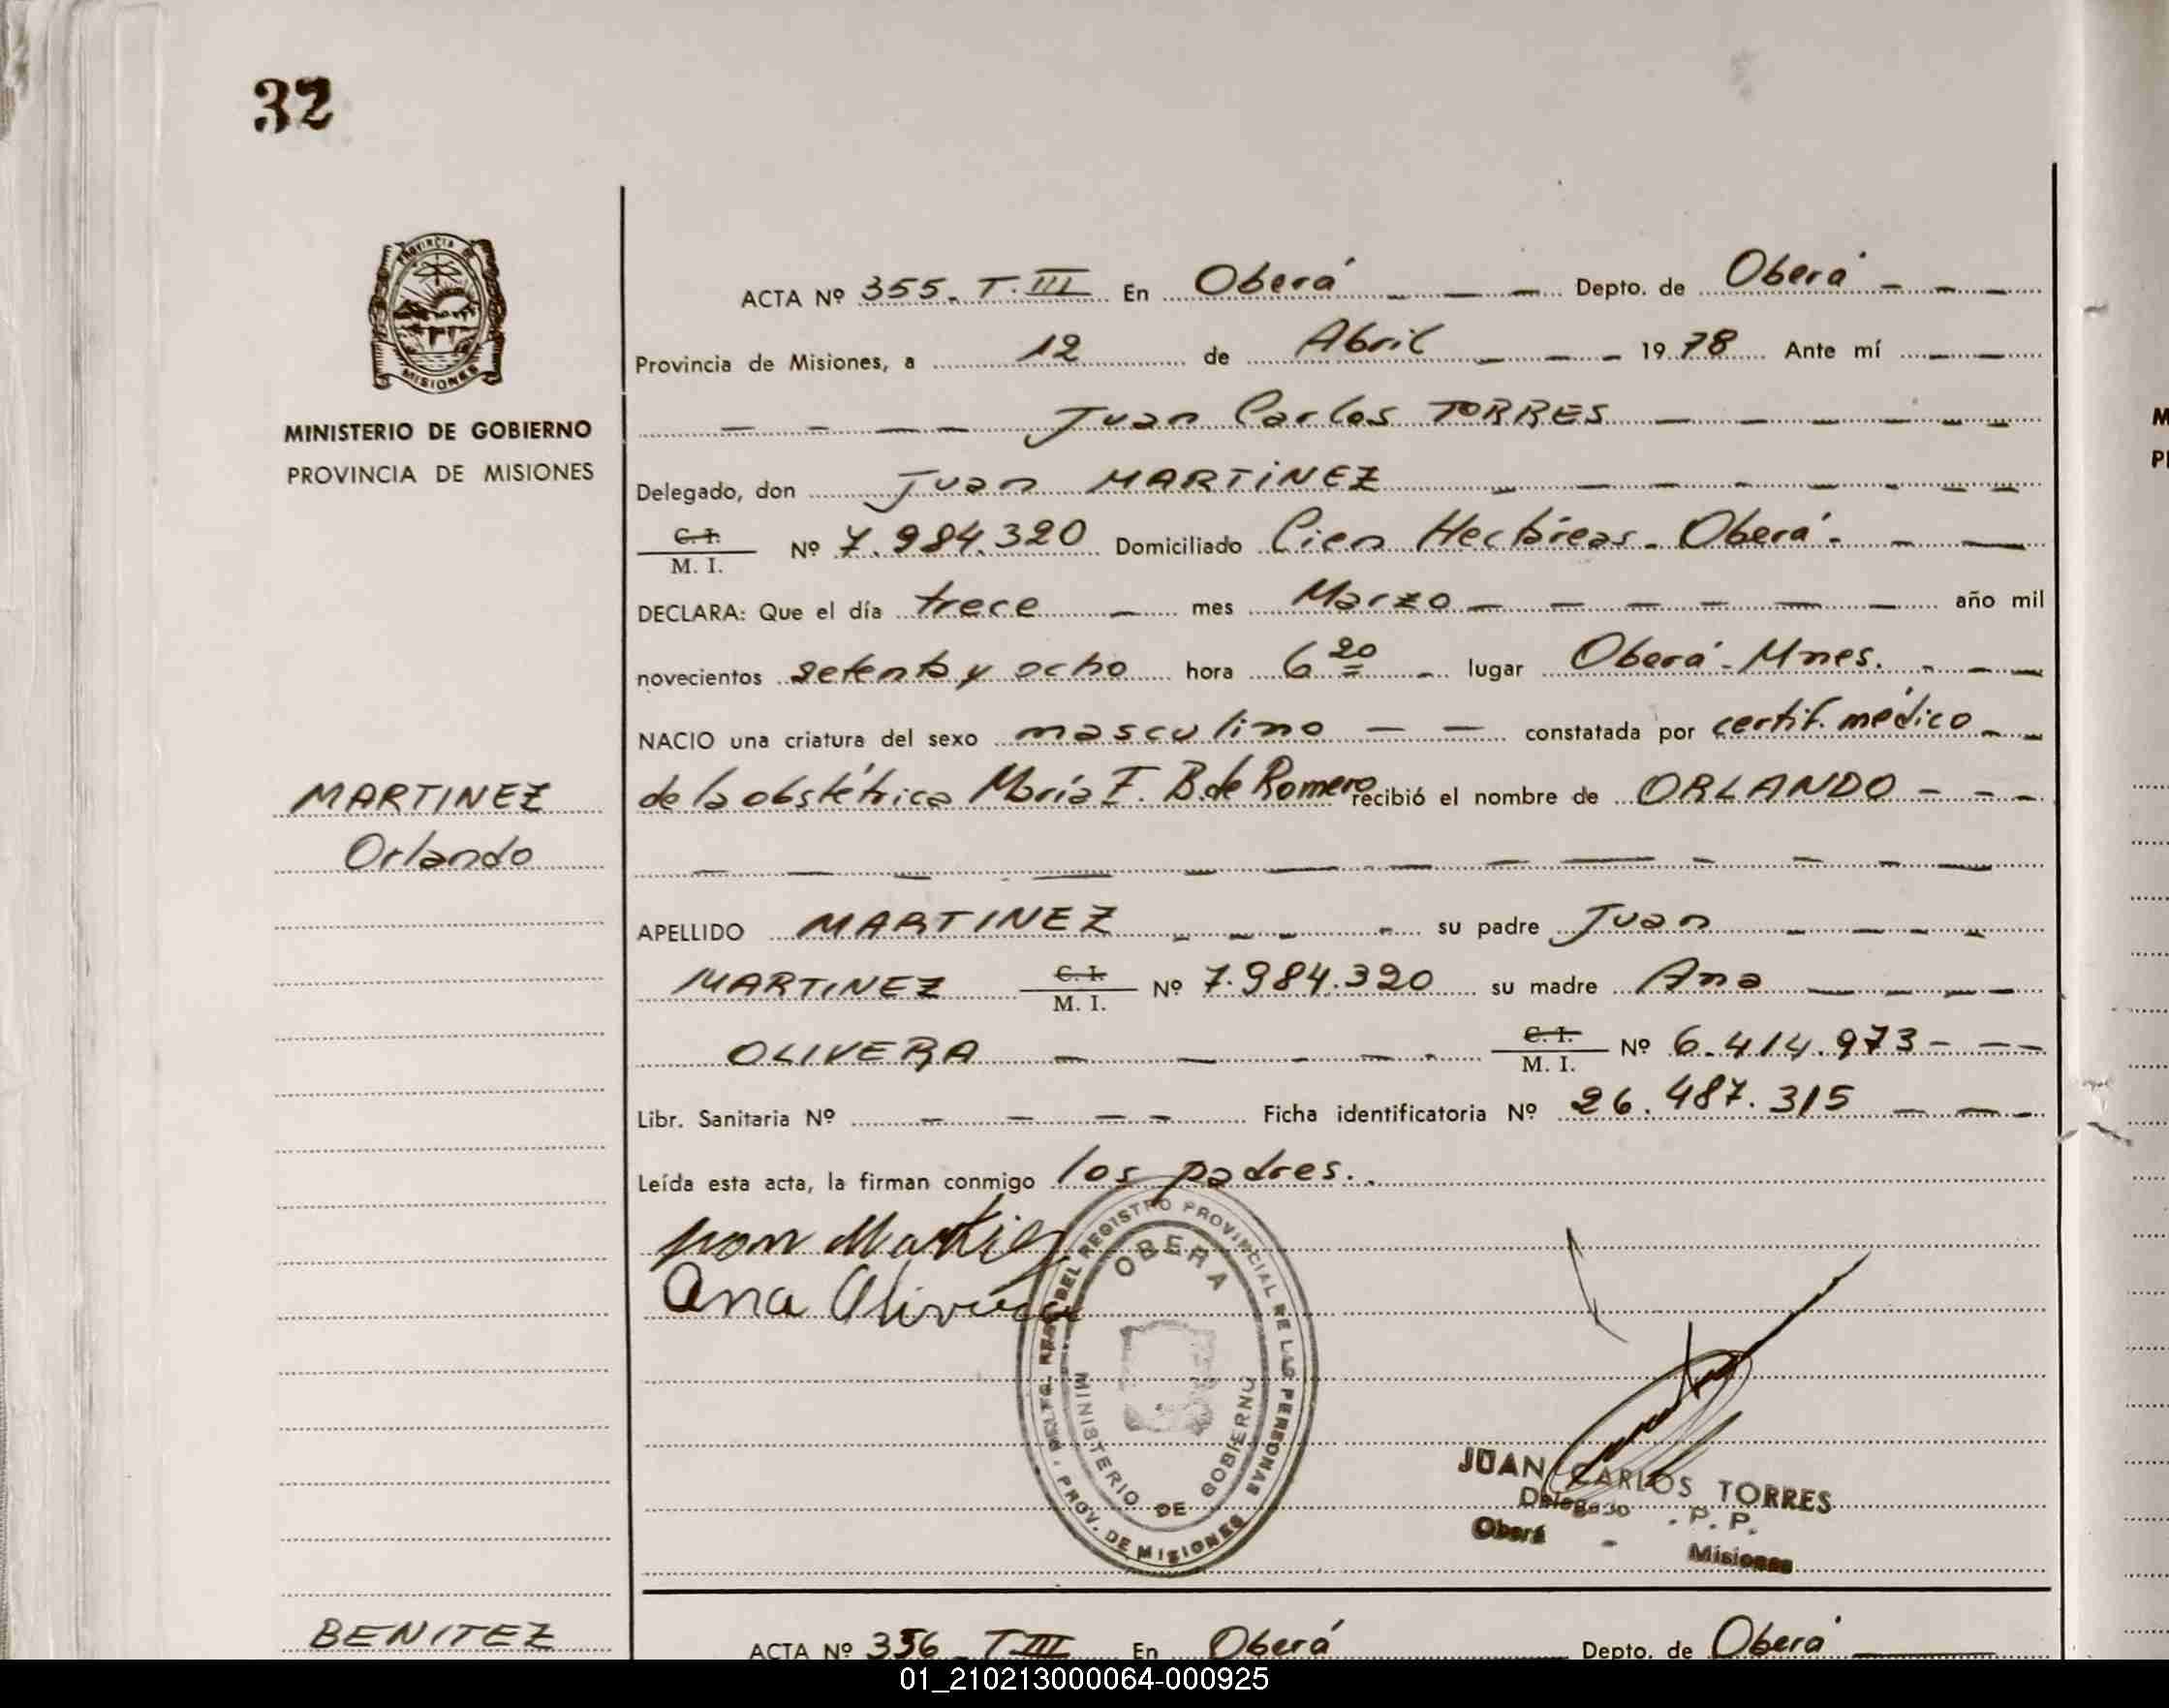 32
PROVINCIA DE
MISIONES
MINISTERIO DE GOBIERNO
PROVINCIA DE MISIONES
MARTINEZ
Orlando
ACTA Nº 355. T. III En Oberá Depto. de Oberá
Provincia de Misiones, a 12 de Abril 1978 Ante mí
Juan Carlos TORRES
Delegado, don Juan MARTINEZ
C. I.
M. I. Nº 7.984.320 Domiciliado Cien Hectáreas - Oberá.
DECLARA: Que el día trece mes Marzo año mil
novecientos setenta y ocho hora 6 20 lugar Oberá - Mnes.
NACIO una criatura del sexo masculino constatada por certif. médico
de la obstétrica María F. B. de Romero recibió el nombre de ORLANDO
APELLIDO MARTINEZ su padre Juan
MARTINEZ C. I.
M. I. Nº 7.984.320 su madre Ana
OLIVERA C. I.
M. I. Nº 6.414.973
Libr. Sanitaria Nº Ficha identificatoria Nº 26.487.315
Leída esta acta, la firman conmigo los padres.
Ana Olivera
DEL REGISTRO PROVINCIAL DE LAS PERSONAS
PROV. DE MISIONES
OBERA
MINISTERIO DE GOBIERNO
JUAN CARLOS TORRES
Delegado P. P.
Oberá - Misiones
BENITEZ
ACTA Nº 356 T III En Oberá Depto. de Oberá
01_210213000064-000925